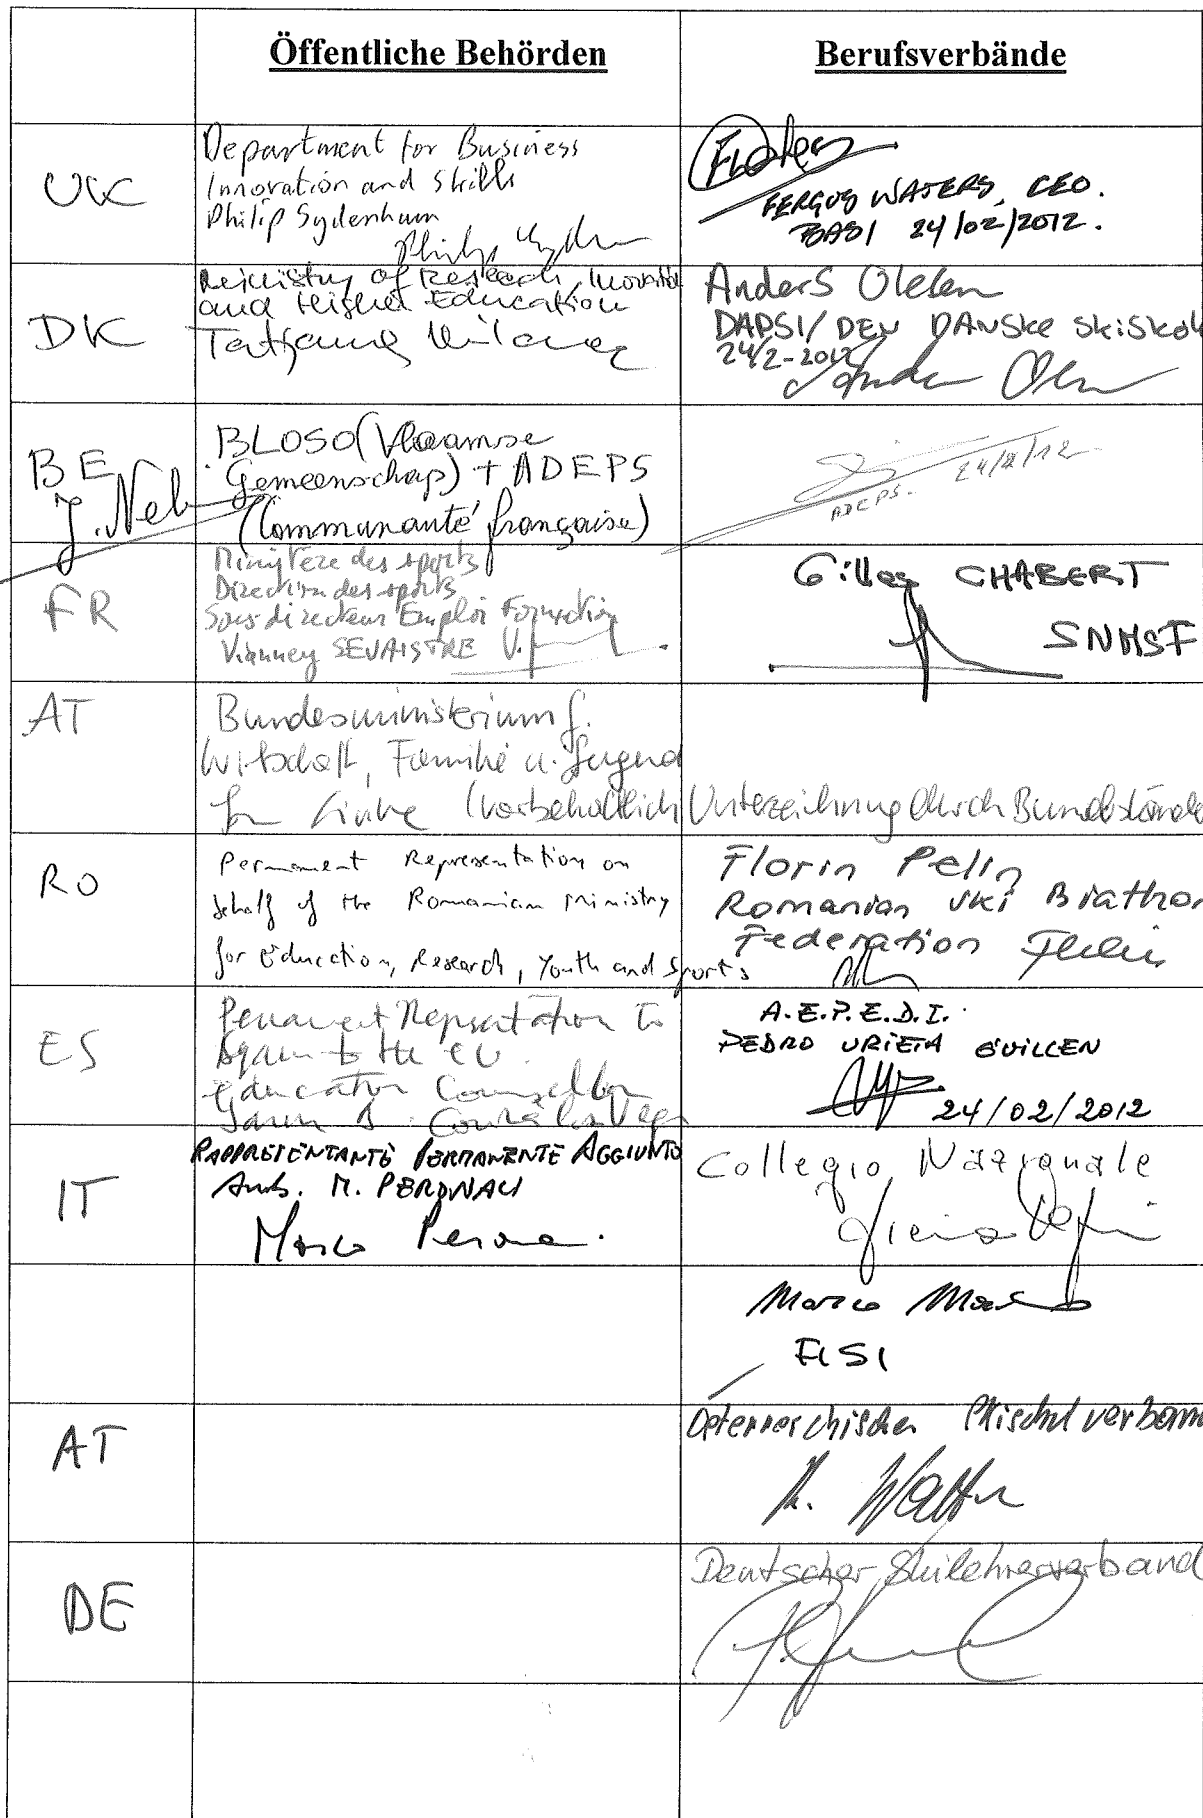 Öffentliche Behörden
Berufsverbände
UK
Department for Business
Innovation and Skills
Philip Sydenham
FERGUS WATERS, CEO.
BASI 24/02/2012.
DK
Ministry of Research, Inovation
and Higher Education
Anders Olesen
DADSI/ DEN DANSKE SkiSkole
24/2-2012
BE
J. Nel
BLOSO (Vlaamse
Gemeenschap) + ADEPS
(Communauté française)
ADEPS. 24/2/12
FR
Ministère des sports
Direction des sports
Sous-directeur Emploi Formation
Vianney SEVAISTRE
Gilles CHABERT
SNMSF
AT
Bundesministerium f.
Wirtschaft, Familie u. Jugend
(vorbehaltlich Unterzeichnung durch Bundesländer
RO
Permanent Representation on
behalf of the Romanian Ministry
for Education, Research, Youth and Sports
Florin Pelin
Romanian ski Biathlon
Federation
ES
Permanent Representation to
Spain to the EU
Education Counsellor
A.E.P.E.D.I.
PEDRO URIETA GUILLEN
24/02/2012
IT
RAPPRESENTANTE PERMANENTE AGGIUNTO
Amb. M. PERONACI
Collegio Nazionale
Marco
FISI
AT
Österreichischer Skischulverband
DE
Deutscher Skilehrerverband